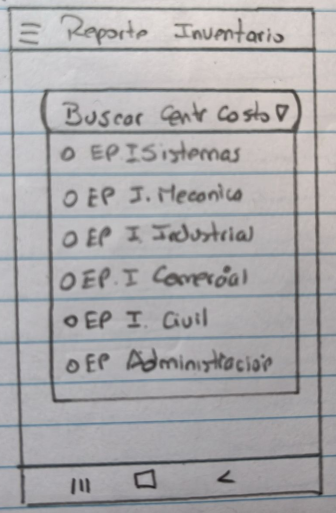 Reporte Inventario
Buscar Centr Costo
EP I Sistemas
EP I. Mecanica
EP I Industrial
EP. I Comercial
EP I. Civil
EP Administracion